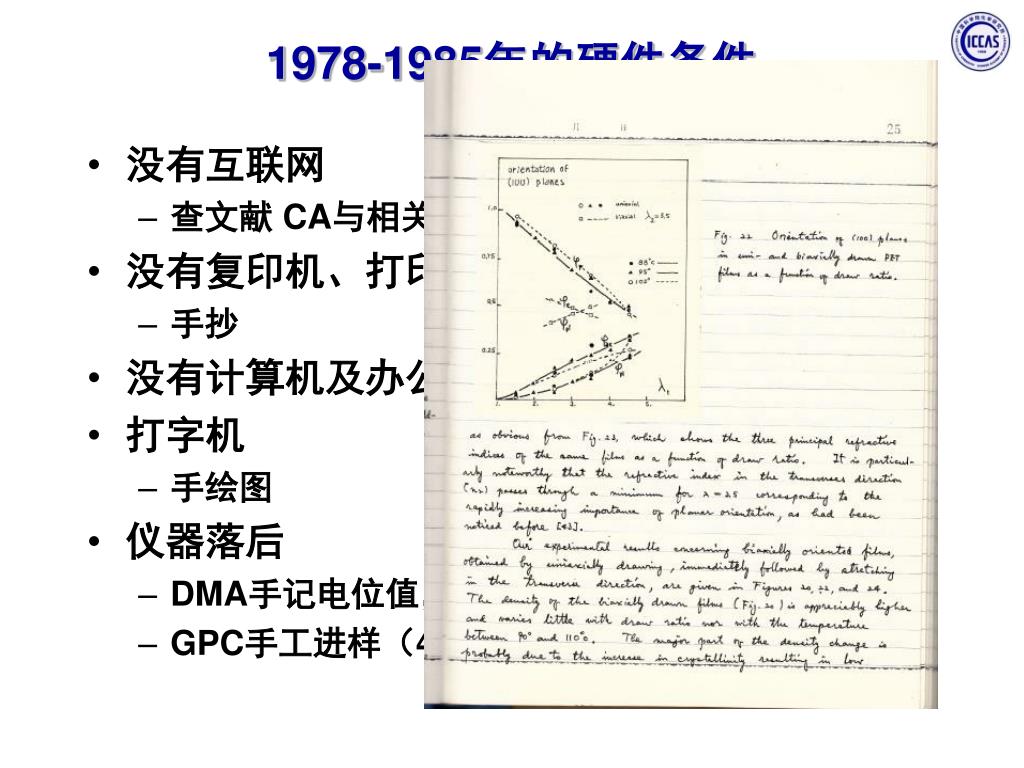 1978-1985年的硬件条件
ICCAS
• 没有互联网
– 查文献 CA与相关
• 没有复印机、打印
– 手抄
• 没有计算机及办公
• 打字机
– 手绘图
• 仪器落后
– DMA手记电位值
– GPC手工进样（4
月 日 25
orientation of
(100) planes
uniaxial
biaxial λ₂=3.5
88°C
95°
102°
1.0
0.75
0.5
0.25
1. 2. 3. 4. 5.
λ₁
Fig. 22 Orientation of (100) planes
in uni- and biaxially drawn PET
films as a function of draw ratio.
as obvious from Fig. 23, which shows the three principal refractive
indices of the same films as a function of draw ratio. It is particul-
arly noteworthy that the refractive index in the transverse direction
passes through a minimum for λ = 2.5 corresponding to the
rapidly increasing importance of planar orientation, as had been
noticed before [43].
Our experimental results concerning biaxially oriented films,
obtained by uniaxially drawing, immediately followed by stretching
in the transverse direction, are given in Figures 20, 22, and 24.
The density of the biaxially drawn films (Fig. 20) is appreciably higher
and varies little with draw ratio nor with the temperature
between 90° and 110°c. The major part of the density change is
probably due to the increase in crystallinity resulting in low